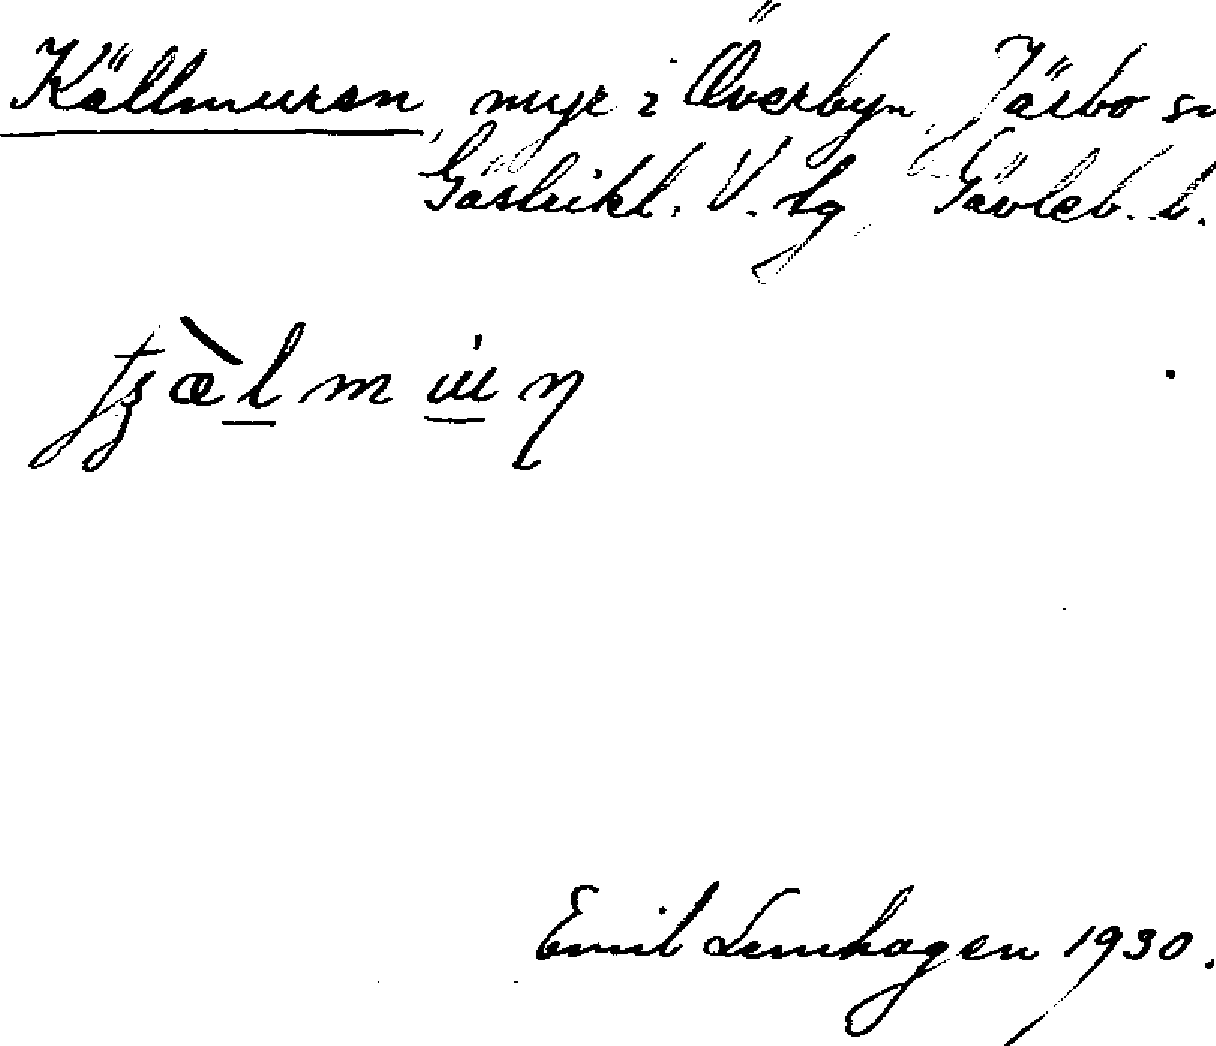 Källmuren, myr i Överbyn, Järbo sn
Gästrikl. V. tg, Gävleb. l.
Emil Lenhagen 1930.